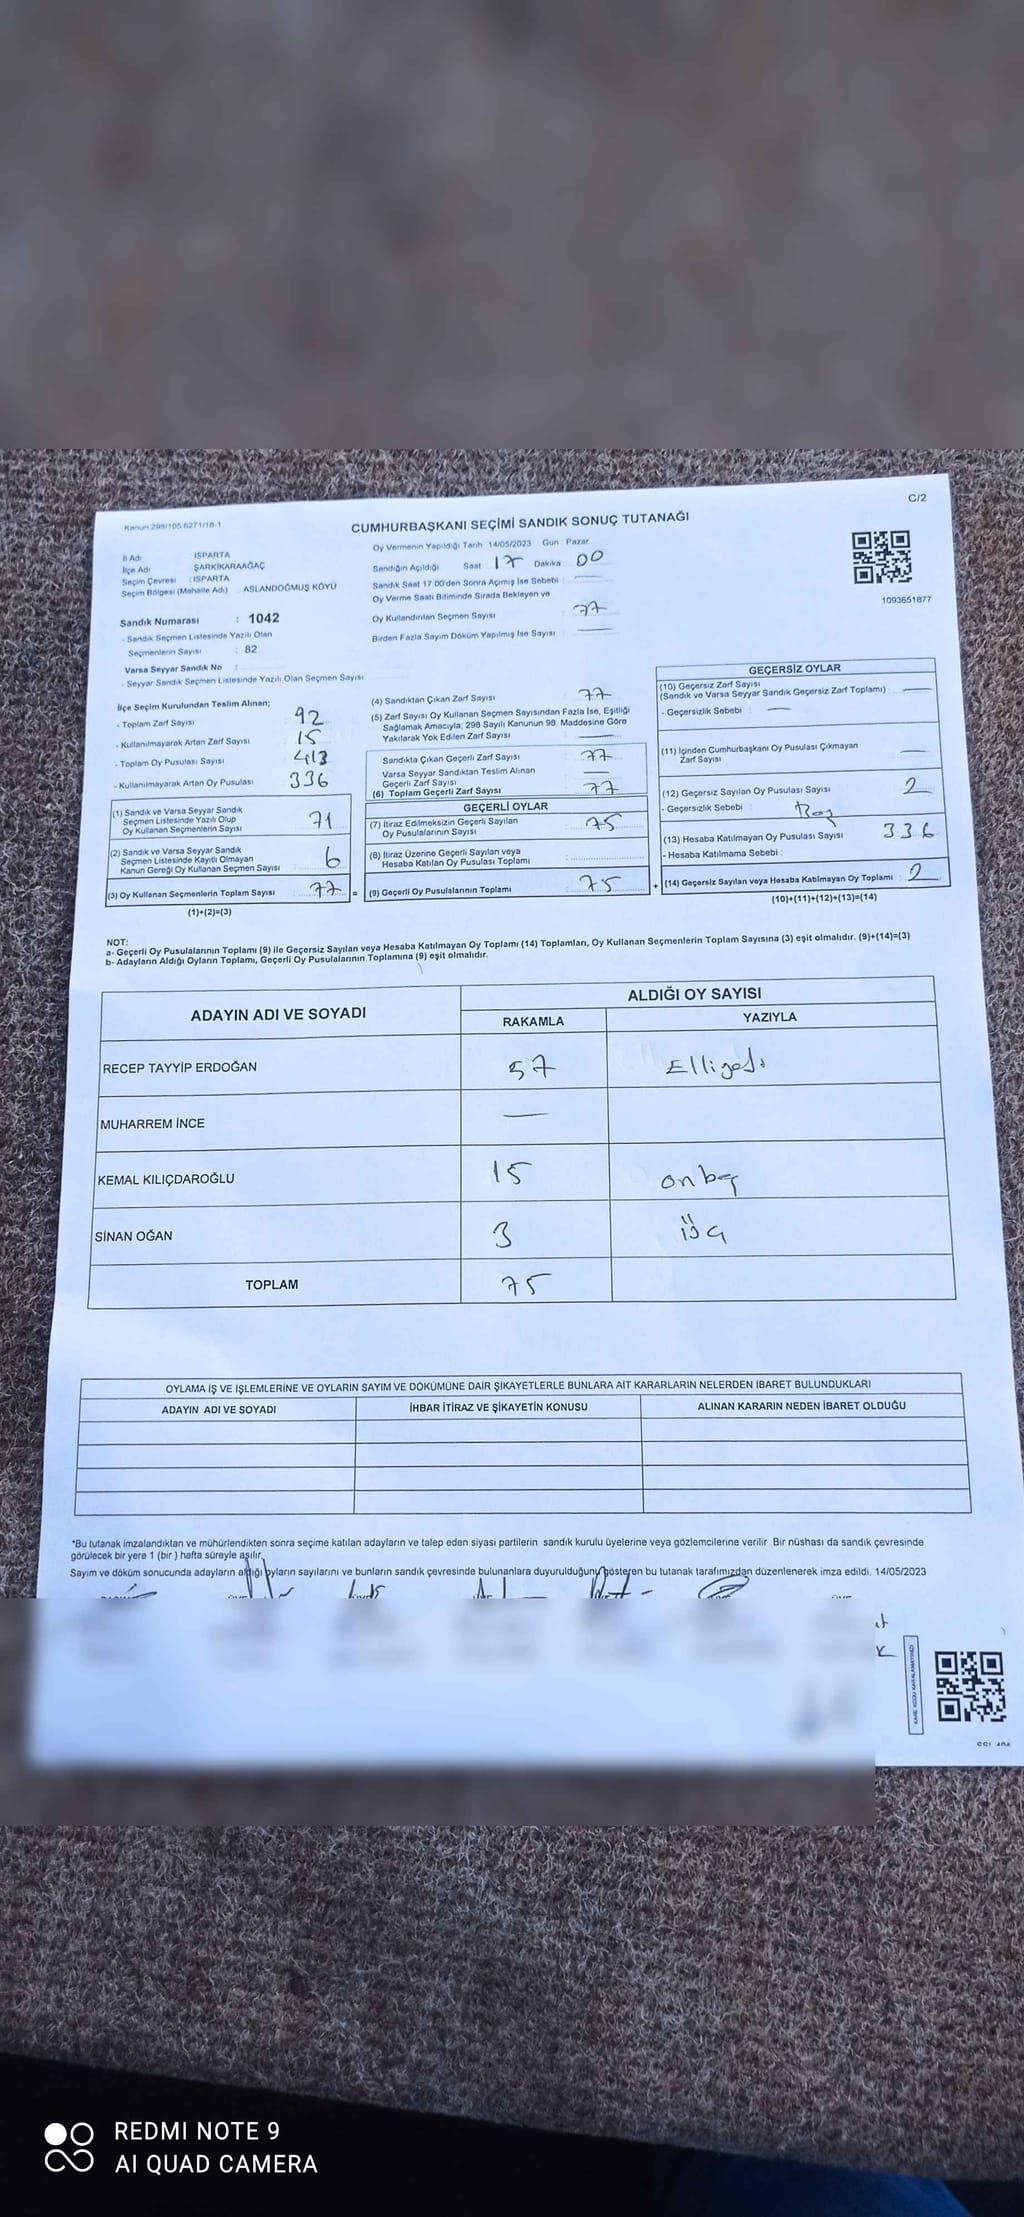 C/2
Kanun:298/105 6271/18-1
CUMHURBAŞKANI SEÇİMİ SANDIK SONUÇ TUTANAĞI
İl Adı : ISPARTA
İlçe Adı : ŞARKİKARAAĞAÇ
Seçim Çevresi : ISPARTA
Seçim Bölgesi (Mahalle Adı) ASLANDOĞMUŞ KÖYÜ
Sandık Numarası : 1042
- Sandık Seçmen Listesinde Yazılı Olan
Seçmenlerin Sayısı : 82
Varsa Seyyar Sandık No :
- Seyyar Sandık Seçmen Listesinde Yazılı Olan Seçmen Sayısı
Oy Vermenin Yapıldığı Tarih 14/05/2023 Gün : Pazar
Sandığın Açıldığı Saat 17 Dakika 00
Sandık Saat 17 00'den Sonra Açımış İse Sebebi
Oy Verme Saati Bitiminde Sırada Bekleyen ve
Oy Kullandırılan Seçmen Sayısı 77
Birden Fazla Sayım Döküm Yapılmış İse Sayısı
1093651877
İlçe Seçim Kurulundan Teslim Alınan;
- Toplam Zarf Sayısı 92
- Kullanılmayarak Artan Zarf Sayısı 15
- Toplam Oy Pusulası Sayısı 413
- Kullanılmayarak Artan Oy Pusulası 336
(1) Sandık ve Varsa Seyyar Sandık
Seçmen Listesinde Yazılı Olup
Oy Kullanan Seçmenlerin Sayısı 71
(2) Sandık ve Varsa Seyyar Sandık
Seçmen Listesinde Kayıtlı Olmayan
Kanun Gereği Oy Kullanan Seçmen Sayısı 6
(3) Oy Kullanan Seçmenlerin Toplam Sayısı 77 =
(1)+(2)=(3)
(4) Sandıktan Çıkan Zarf Sayısı 77
(5) Zarf Sayısı Oy Kullanan Seçmen Sayısından Fazla İse, Eşitliği
Sağlamak Amacıyla; 298 Sayılı Kanunun 98. Maddesine Göre
Yakılarak Yok Edilen Zarf Sayısı
Sandıkta Çıkan Geçerli Zarf Sayısı 77
Varsa Seyyar Sandıktan Teslim Alınan
Geçerli Zarf Sayısı
(6) Toplam Geçerli Zarf Sayısı 77
GEÇERLİ OYLAR
(7) İtiraz Edilmeksizin Geçerli Sayılan
Oy Pusulalarının Sayısı 75
(8) İtiraz Üzerine Geçerli Sayılan veya
Hesaba Katılan Oy Pusulası Toplamı
(9) Geçerli Oy Pusulalarının Toplamı 75 +
GEÇERSİZ OYLAR
(10) Geçersiz Zarf Sayısı
(Sandık ve Varsa Seyyar Sandık Geçersiz Zarf Toplamı)
- Geçersizlik Sebebi
(11) İçinden Cumhurbaşkanı Oy Pusulası Çıkmayan
Zarf Sayısı
(12) Geçersiz Sayılan Oy Pusulası Sayısı 2
- Geçersizlik Sebebi : Boş
(13) Hesaba Katılmayan Oy Pusulası Sayısı 336
- Hesaba Katılmama Sebebi :
(14) Geçersiz Sayılan veya Hesaba Katılmayan Oy Toplamı 2
(10)+(11)+(12)+(13)=(14)
NOT:
a- Geçerli Oy Pusulalarının Toplamı (9) ile Geçersiz Sayılan veya Hesaba Katılmayan Oy Toplamı (14) Toplamları, Oy Kullanan Seçmenlerin Toplam Sayısına (3) eşit olmalıdır. (9)+(14)=(3)
b- Adayların Aldığı Oyların Toplamı, Geçerli Oy Pusulalarının Toplamına (9) eşit olmalıdır.
ADAYIN ADI VE SOYADI
ALDIĞI OY SAYISI
RAKAMLA YAZIYLA
RECEP TAYYİP ERDOĞAN 57 Elliyedi
MUHARREM İNCE —
KEMAL KILIÇDAROĞLU 15 onbeş
SİNAN OĞAN 3 üç
TOPLAM 75
OYLAMA İŞ VE İŞLEMLERİNE VE OYLARIN SAYIM VE DÖKÜMÜNE DAİR ŞİKAYETLERLE BUNLARA AİT KARARLARIN NELERDEN İBARET BULUNDUKLARI
ADAYIN ADI VE SOYADI İHBAR İTİRAZ VE ŞİKAYETİN KONUSU ALINAN KARARIN NEDEN İBARET OLDUĞU
*Bu tutanak imzalandıktan ve mühürlendikten sonra seçime katılan adayların ve talep eden siyasi partilerin sandık kurulu üyelerine veya gözlemcilerine verilir Bir nüshası da sandık çevresinde
görülecek bir yere 1 (bir ) hafta süreyle asılır.
Sayım ve döküm sonucunda adayların aldığı oyların sayılarını ve bunların sandık çevresinde bulunanlara duyurulduğunu gösteren bu tutanak tarafımızdan düzenlenerek imza edildi. 14/05/2023
KARE KODU KARALAMAYINIZ
REDMI NOTE 9
AI QUAD CAMERA